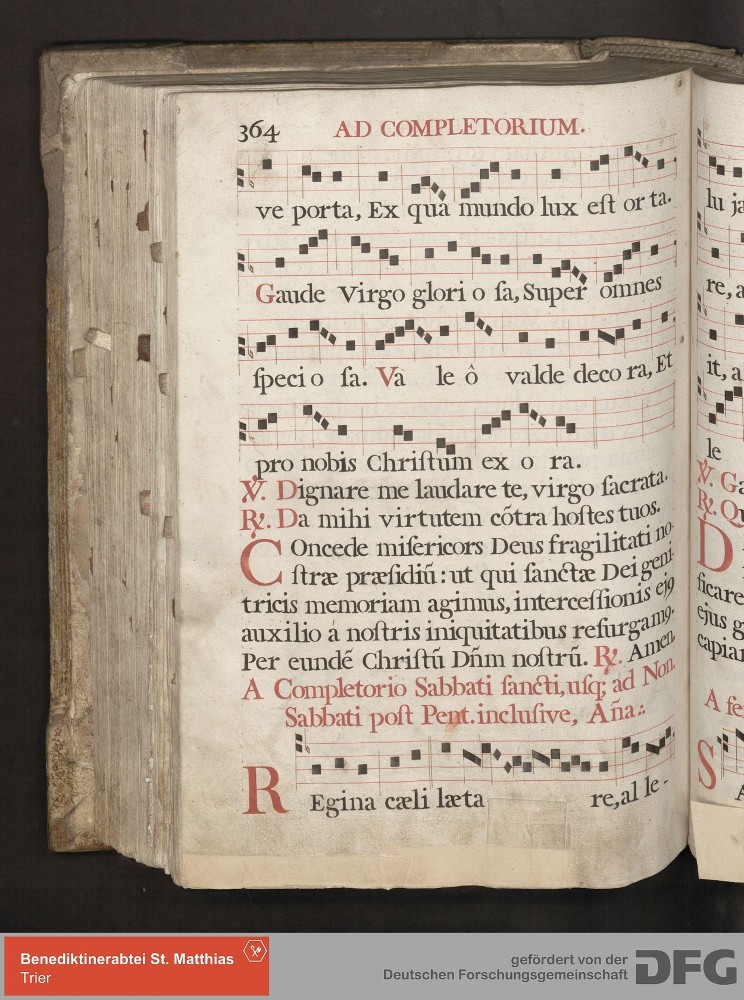 364 AD COMPLETORIUM.
ve porta, Ex qua mundo lux eſt or ta.
Gaude Virgo glori o ſa, Super omnes
ſpeci o ſa. Va le ô valde deco ra, Et
pro nobis Chriſtum ex o ra.
℣. Dignare me laudare te, virgo ſacrata.
℟. Da mihi virtutem cõtra hoſtes tuos.
COncede miſericors Deus fragilitati no-
ſtræ præſidiũ: ut qui ſanctæ Dei geni-
tricis memoriam agimus, interceſſionis ejꝯ
auxilio á noſtris iniquitatibus reſurgamꝯ.
Per eundẽ Chriſtũ Dñm noſtrũ. ℟. Amen.
A Completorio Sabbati ſancti, uſq; ad Non.
Sabbati poſt Pent. incluſive, Aña.:
REgina cæli læta re, al le -
lu ja
re, a
it, a
le
℣. Ga
℟. Qu
D
ficare
ejus g
capian
A fe
S
A
Benediktinerabtei St. Matthias
Trier
gefördert von der
Deutschen Forschungsgemeinschaft
DFG